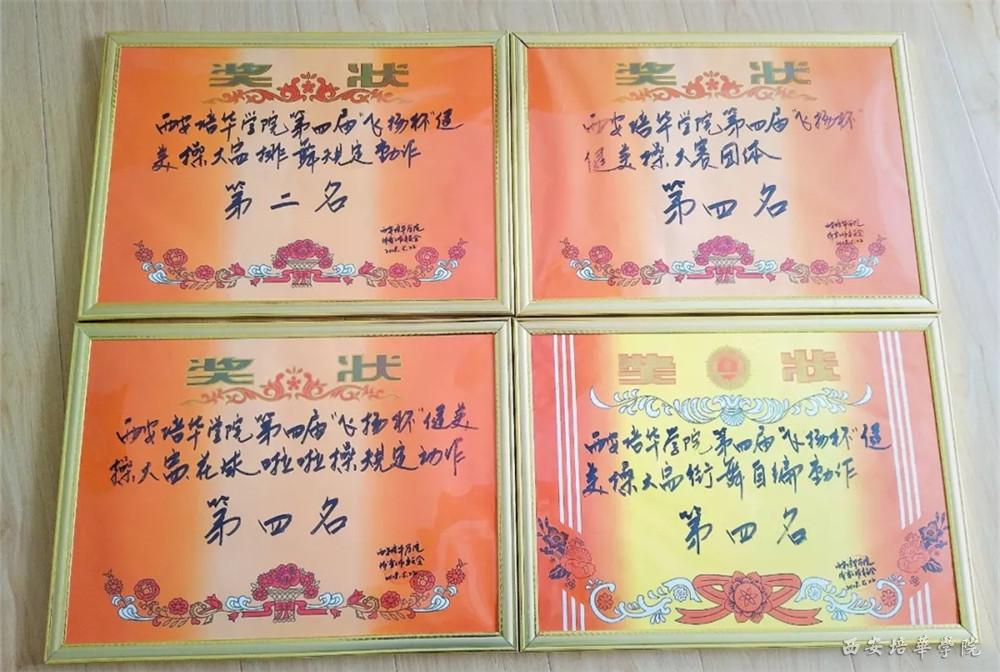 奖 状
西安培华学院第四届"飞扬杯"健
美操大赛排舞规定动作
第二名
西安培华学院
奖 状
西安培华学院第四届"飞扬杯"
健美操大赛团体
第四名
西安培华学院
奖 状
西安培华学院第四届"飞扬杯"健美
操大赛花球啦啦操规定动作
第四名
西安培华学院
奖 状
西安培华学院第四届"飞扬杯"健
美操大赛街舞自编动作
第四名
西安培华学院
西安培華学院